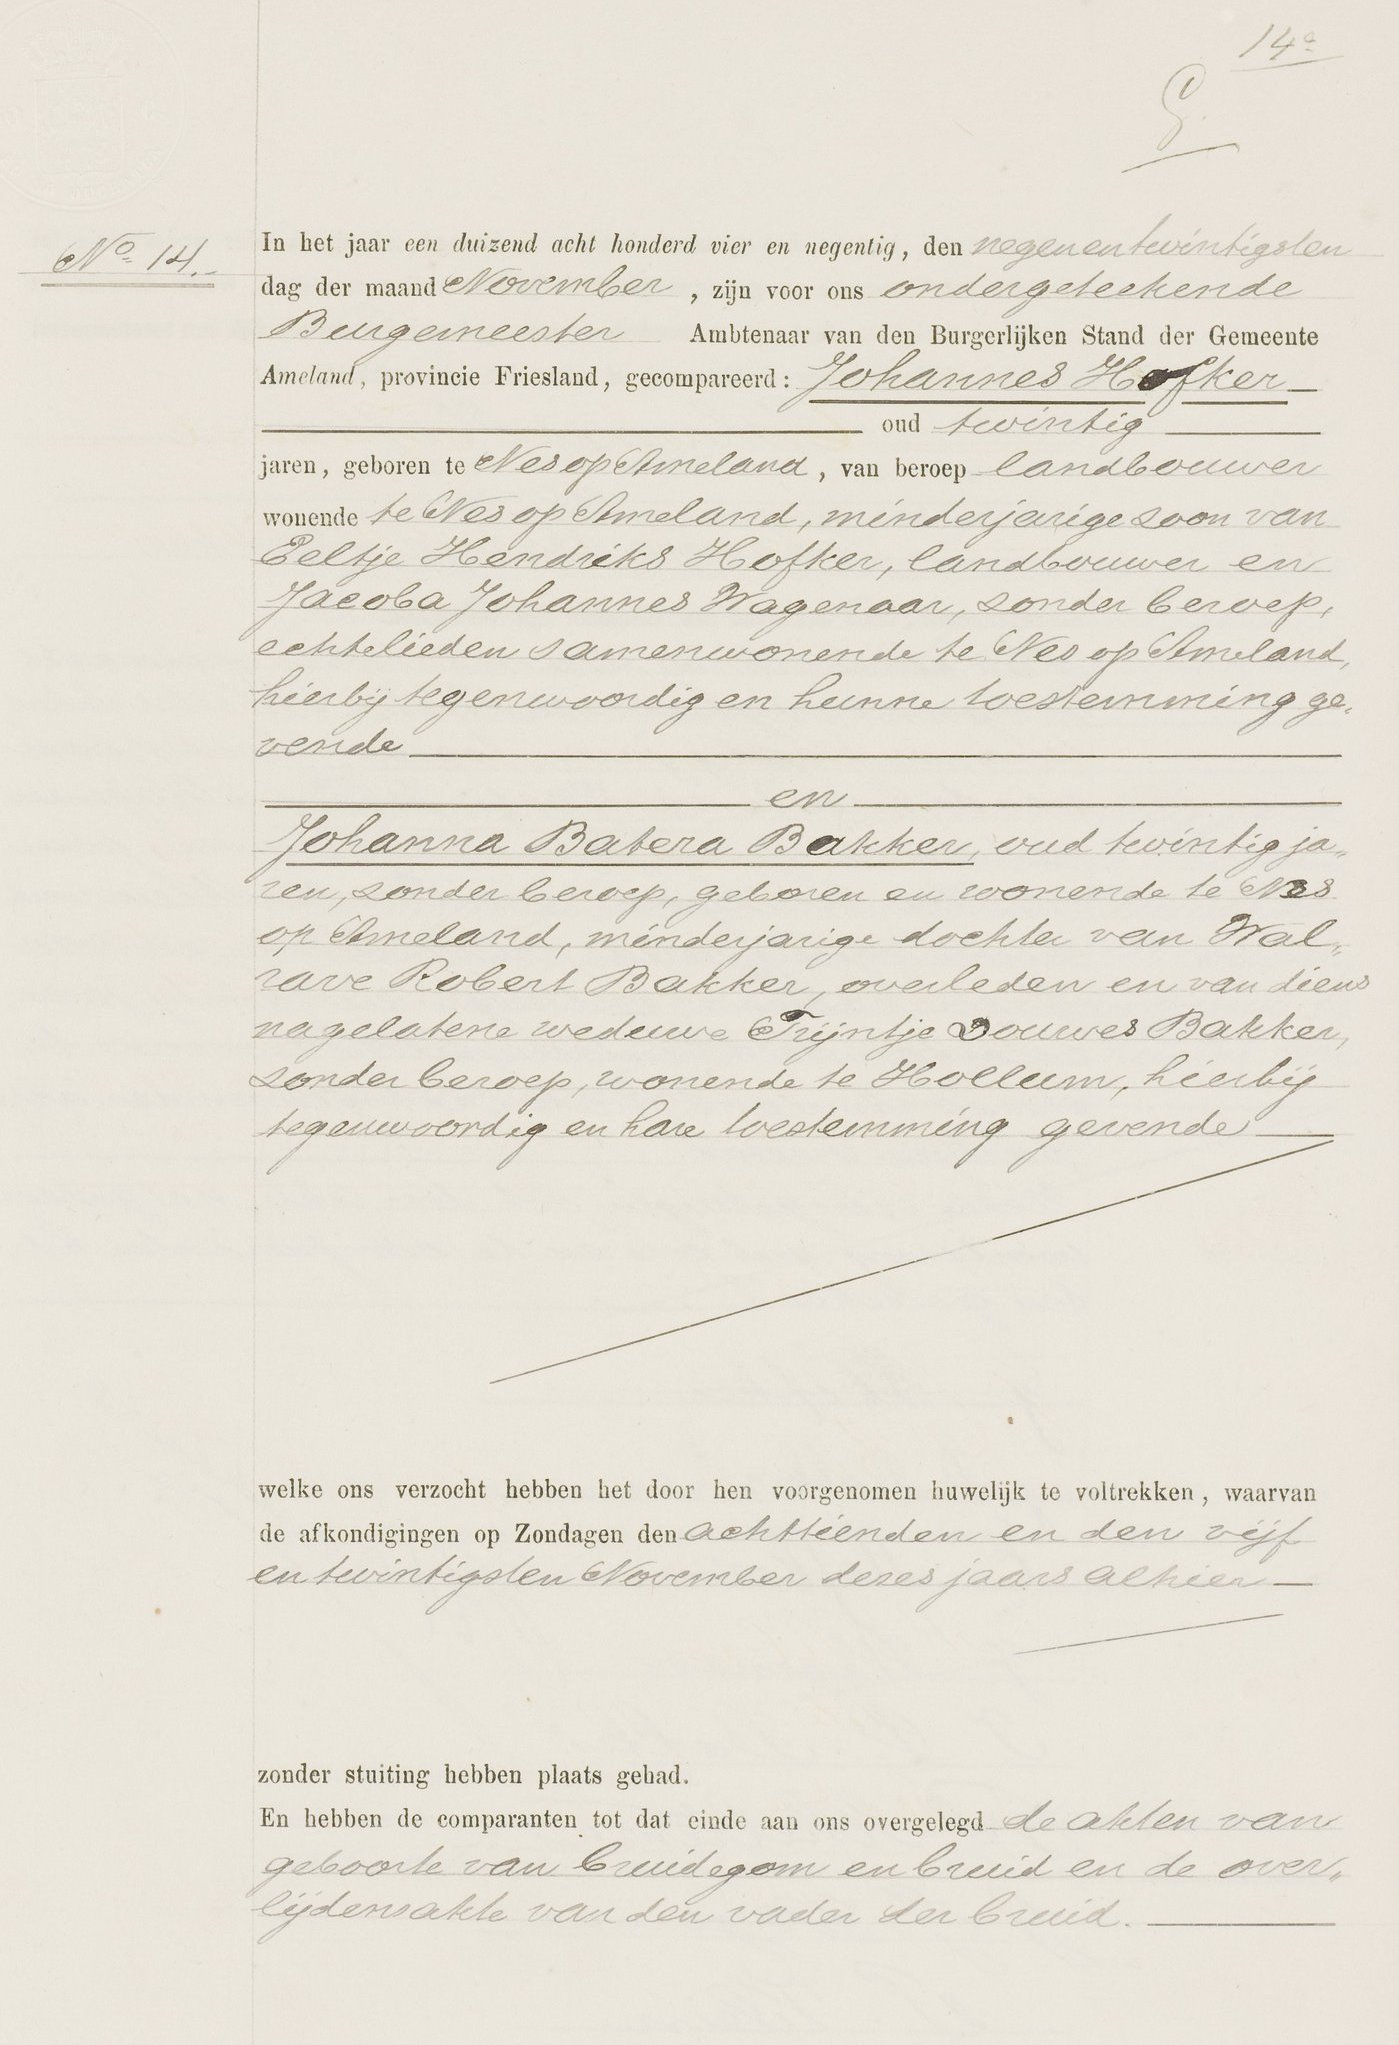 14e
G.
No. 14.
In het jaar een duizend acht honderd vier en negentig, den negenentwintigsten
dag der maand November, zijn voor ons ondergeteekende
Burgemeester Ambtenaar van den Burgerlijken Stand der Gemeente
Ameland, provincie Friesland, gecompareerd: Johannes Hofker
oud twintig
jaren, geboren te Nes op Ameland, van beroep landbouwer
wonende te Nes op Ameland, minderjarige zoon van
Eeltje Hendriks Hofker, landbouwer en
Jacoba Johannes Wagenaar, zonder beroep,
echtelieden samenwonende te Nes op Ameland,
hierbij tegenwoordig en hunne toestemming ge„
vende
en
Johanna Batera Bakker, oud twintig ja„
ren, zonder beroep, geboren en wonende te Nes
op Ameland, minderjarige dochter van Wal„
rave Robert Bakker, overleden en van diens
nagelatene weduwe Trijntje Douwes Bakker,
zonder beroep, wonende te Hollum, hierbij
tegenwoordig en hare toestemming gevende
welke ons verzocht hebben het door hen voorgenomen huwelijk te voltrekken, waarvan
de afkondigingen op Zondagen den achttienden en den vijf
en twintigsten November dezes jaars alhier
zonder stuiting hebben plaats gehad.
En hebben de comparanten tot dat einde aan ons overgelegd de akten van
geboorte van bruidegom en bruid en de over„
lijdensakte van den vader der bruid.